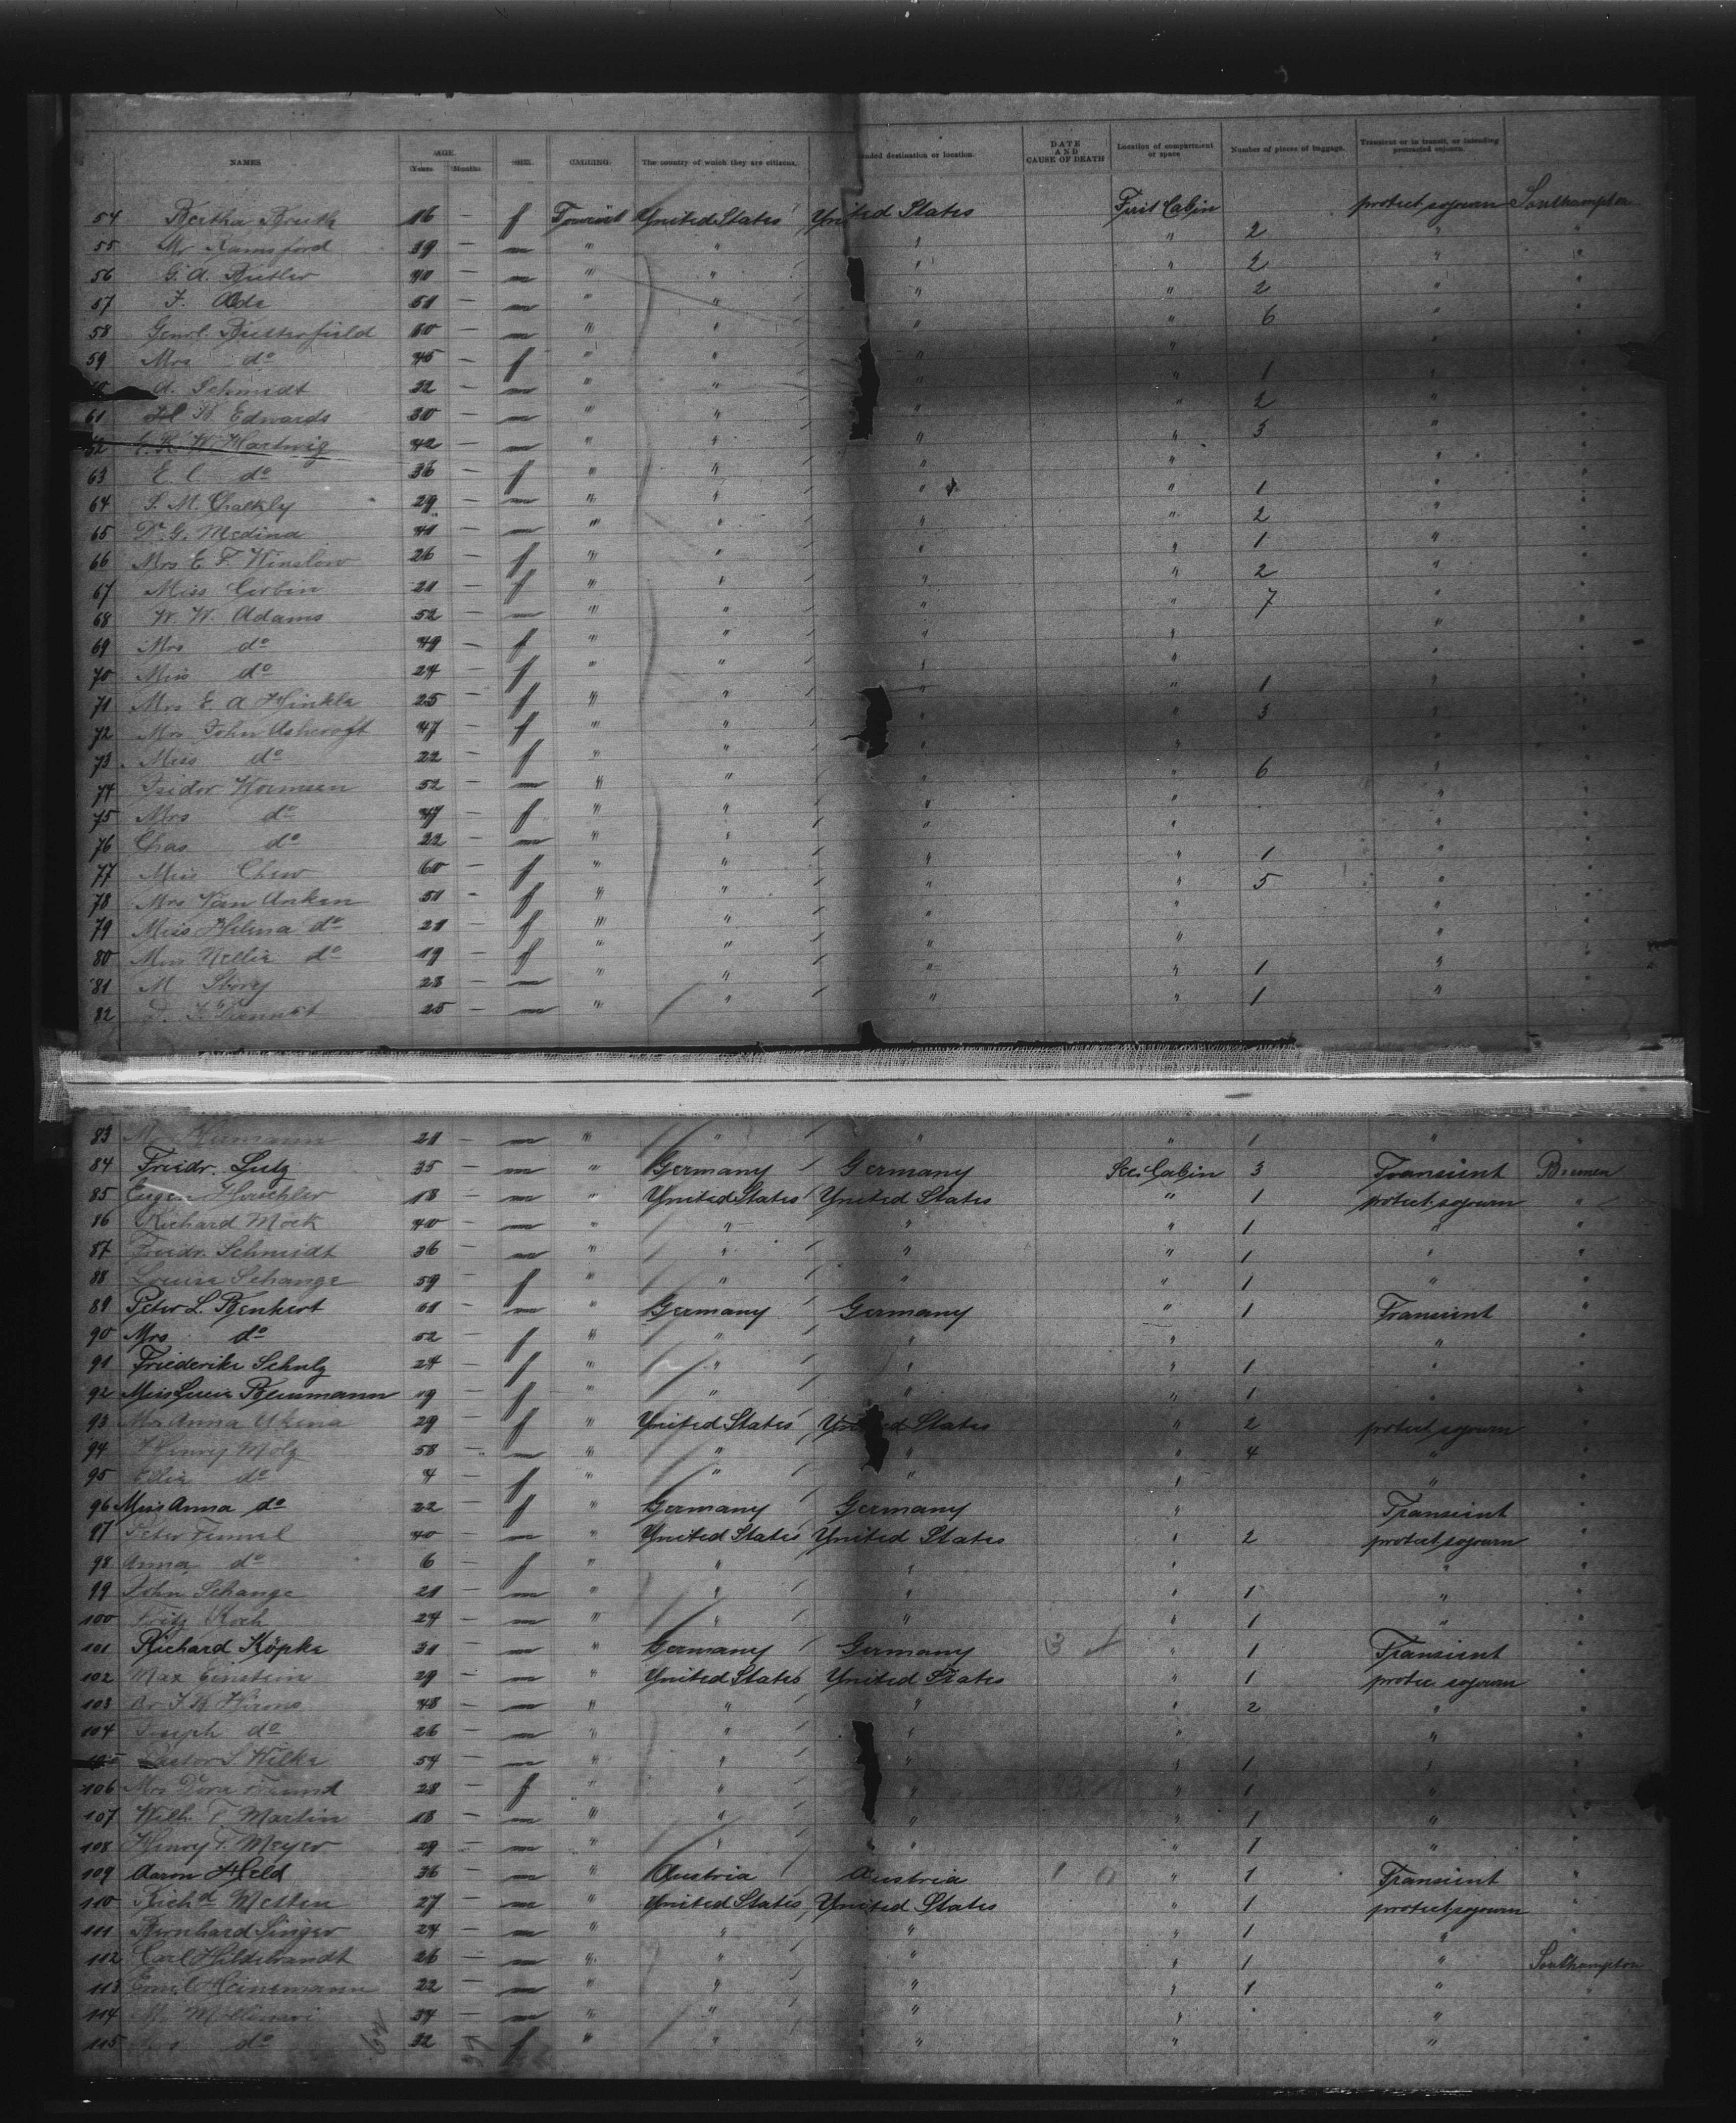 NAMES AGE. Years Months SEX. CALLING. The country of which they are citizens. ended destination or location. DATE AND CAUSE OF DEATH Location of compartment or space Number of pieces of baggage. Transient or in transit, or intending protracted sojourn.
54 Bertha 16 — f Tourist United States United States First Cabin protect sojourn Southampton
55 Mr Ramsford 39 — m " " " " 2 " "
56 G. A. Butler 40 — m " " " " 2 " "
57 F. Ade 51 — m " " " " 2 " "
58 Genrl. Butterfield 60 — m " " " " 6 " "
59 Mrs do 45 — f " " " " " "
A. Schmidt 32 — m " " " " 1 " "
61 K Edwards 30 — m " " " " 2 " "
62 W. Hartwig 42 — m " " " " 3 " "
63 E. C. do 36 — f " " " " " "
64 S. M. Chalkly 29 — m " " " " 1 " "
65 Dr. G. Medina 41 — m " " " " 2 " "
66 Mrs E. F. Winslow 26 — f " " " " 1 " "
67 Miss Corbin 21 — f " " " " 2 " "
68 W. W. Adams 52 — m " " " " 7 " "
69 Mrs do 49 — f " " " " " "
70 Miss do 24 — f " " " " " "
71 Mrs E. A Hinkle 25 — f " " " " 1 " "
72 Mrs John Ashcroft 47 — f " " " " 3 " "
73 Miss do 22 — f " " " " " "
74 Isidor Wormser 52 — m " " " " 6 " "
75 Mrs do 47 — f " " " " " "
76 Chas do 22 — m " " " " " "
77 Miss Chew 60 — f " " " " 1 " "
78 Mrs Van Anken 51 — f " " " " 5 " "
79 Miss Helena do 21 — f " " " " " "
80 Miss Nellie do 19 — f " " " " " "
81 M Story 23 — m " " " " 1 " "
82 D. F. 25 — m " " " " 1 " "
83 M. 21 — m " " " " 1 " "
84 Friedr. Lutz 35 — m " Germany Germany Sec. Cabin 3 Transient Bremen
85 Eugen Hirschler 18 — m " United States United States " 1 protect sojourn "
86 Richard Mock 40 — m " " " " 1 " "
87 Friedr. Schmidt 36 — m " " " " 1 " "
88 Louise Schange 59 — f " " " " 1 " "
89 Peter L. Benhert 61 — m " Germany Germany " 1 Transient "
90 Mrs do 52 — f " " " " " "
91 Friederike Schulz 24 — f " " " " 1 " "
92 Miss Lucie Beusmann 19 — f " " " " 1 " "
93 Mrs Anna Ukena 29 — f " United States United States " 2 protect sojourn "
94 Henry Molz 58 — m " " " " 4 " "
95 Ella do 4 — f " " " " " "
96 Miss Anna do 22 — f " Germany Germany " Transient "
97 Peter Fimmel 40 — m " United States United States " 2 protect sojourn "
98 Anna do 6 — f " " " " " "
99 John Schange 21 — m " " " " 1 " "
100 Fritz Koch 24 — m " " " " 1 " "
101 Richard Köpke 31 — m " Germany Germany 3 " 1 Transient "
102 Max Einstein 29 — m " United States United States " 1 protec sojourn "
103 Hirons 48 — m " " " " 2 " "
104 Joseph do 26 — m " " " " " "
Pastor S Wilke 54 — m " " " " 1 " "
106 Mrs Dora Freund 28 — f " " " " 1 " "
107 Wilh. F. Martin 18 — m " " " " 1 " "
108 Henry F. Meyer 29 — m " " " " 1 " "
109 Aaron Held 36 — m " Austria Austria 1 0 " 1 Transient "
110 Richd Mesten 27 — m " United States United States " 1 protect sojourn "
111 Bernhard Singer 24 — m " " " " 1 " "
112 Carl Hildebrandt 26 — m " " " " 1 " Southampton
113 Emil Heinemann 22 — m " " " " 1 " "
114 M. 34 — m " " " " " "
115 Mrs do 32 — f " " " " " "